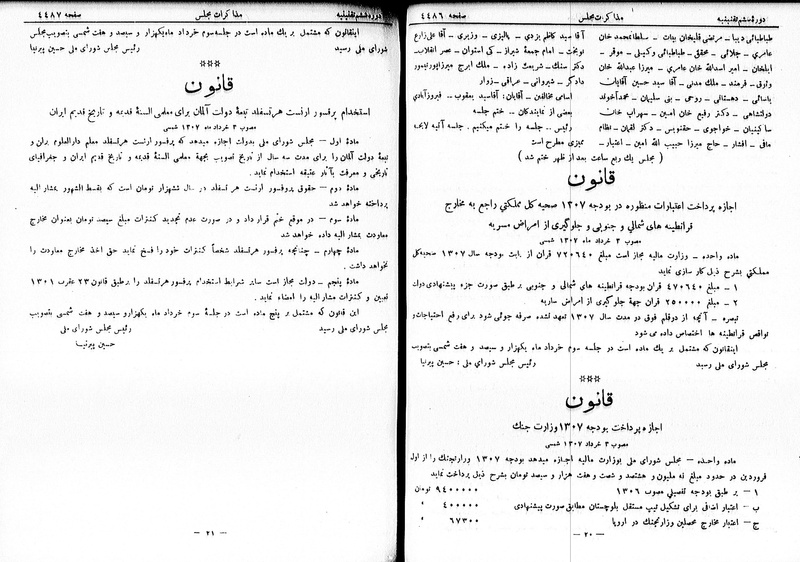 دوره ششم تقنینیه
مذاکرات مجلس
صفحه ۴۴۸۶
طباطبائی دیبا ـ مرتضی قلیخان بیات ـ سلطانمحمد خان
عامری ـ جلائی ـ محقق ـ طباطبائی وکیلی ـ موقر ـ
ایلخان ـ امیر اسدالله خان عامری ـ میرزا عبدالله خان
وثوق ـ فرهمند ـ ملک مدنی ـ آقا سید حسین آقایان
یاسائی ـ دهستانی ـ روحی ـ بنی سلیمان ـ محمدآخوند
دولتشاهی ـ دکتر رفیع خان امین ـ سهراب خان
ساکینیان ـ خواجوی ـ حقنویس ـ دکتر لقمان ـ نظام
مافی ـ افشار ـ حاج میرزا حبیب الله امین ـ اعتبار ـ
آقا سید کاظم یزدی ـ پالیزی ـ وزیری ـ آقا علی زارع
نوبخت ـ امام جمعه شیراز ـ کی استوان ـ عصر انقلاب
دکتر سنک ـ شریعت زاده ـ ملک ایرج میرزاپورتیمور
دادگر ـ شیروانی ـ عراقی ـ زوار
اسامی مخالفین ـ آقایان: آقاسید یعقوب ـ فیروزآبادی
بعضی از نمایندگان ـ ختم جلسه
رئیس ـ جلسه را ختم میکنیم . جلسه آتیه لایحه
ممیزی مطرح است
( مجلس یک ربع ساعت بعد از ظهر ختم شد )
قانون
اجازه پرداخت اعتبارات منظوره در بودجه ۱۳۰۷ صحیه کل مملکتی راجع به مخارج
قرانطینه های شمالی و جنوبی و جلوگیری از امراض مسریه
مصوب ۳ خرداد ماه ۱۳۰۷ شمسی
ماده واحده ـ وزارت مالیه مجاز است مبلغ ۷۲۰۶۴۰ قران از بابت بودجه سال ۱۳۰۷ صحیه کل
مملکتی بشرح ذیل کار سازی نماید
۱ ـ مبلغ ۴۷۰۶۴۰ قران بودجه قرانطینه های شمالی و جنوبی بر طبق صورت جزء پیشنهادی دولت
۲ ـ مبلغ ۲۵۰۰۰۰ قران جهة جلوگیری از امراض ساریه
تبصره ـ آنچه از دوقلم فوق در مدت سال ۱۳۰۷ تعهد نشده صرفه جوئی شود برای رفع احتیاجات و
نواقص قرانطینه ها اختصاص داده می شود
اینقانون که مشتمل بر یک ماده است در جلسه سوم خرداد ماه یکهزار و سیصد و هفت شمسی بتصویب
مجلس شورای ملی رسید
رئیس مجلس شورای ملی : حسین پیرنیا
***
قانون
اجازه پرداخت بودجه ۱۳۰۷ وزارت جنک
مصوب ۳ خرداد ۱۳۰۷ شمسی
ماده واحده ـ مجلس شورای ملی بوزارت مالیه اجازه میدهد بودجه ۱۳۰۷ وزارتجنک را از اول
فروردین در حدود مبلغ نه ملیون و هشتصد و شصت و هفت هزار و سیصد تومان بشرح ذیل پرداخت نماید
۱ ـ بر طبق بودجه تفصیلی مصوب ۱۳۰۶ ۹۴۰۰۰۰۰ تومان
ب ـ اعتبار اضافی برای تشکیل تیپ مستقل بلوچستان مطابق صورت پیشنهادی ۴۰۰۰۰۰ »
ج ـ اعتبار مخارج محصلین وزارتجنک در اروپا ۶۷۳۰۰ »
ـ ۲۰ ـ
دوره ششم تقنینیه
مذاکرات مجلس
صفحه ۴۴۸۷
اینقانون که مشتمل بر یک ماده است در جلسه سوم خرداد ماه یکهزار و سیصد و هفت شمسی بتصویب مجلس
شورای ملی رسید
رئیس مجلس شورای ملی حسین پیرنیا
***
قانون
استخدام پرفسور ارنست هرتسفلد تبعۀ دولت آلمان برای معلمی السنۀ قدیمه و تاریخ قدیم ایران
مصوب ۳ خرداد ماه ۱۳۰۷ شمسی
مادۀ اول ـ مجلس شورای ملی بدولت اجازه میدهد که پرفسور ارنست هرتسفلد معلم دارالعلوم برلن و
تبعۀ دولت آلمان را برای مدت سه سال از تاریخ تصویب بجهة معلمی السنۀ قدیمه و تاریخ قدیم ایران و جغرافیای
تاریخی و معرفت بآثار عتیقه استخدام نماید .
مادۀ دوم ـ حقوق پرفسور ارنست هرتسفلد در سال ششهزار تومان است که بقسط الشهور بمشارالیه
پرداخته خواهد شد
مادۀ سوم ـ در موقع ختم قرار داد و در صورت عدم تجدید کنترات مبلغ سیصد تومان بعنوان مخارج
معاودت بمشار الیه داده خواهد شد
مادۀ چهارم ـ چنانچه پرفسور هرتسفلد شخصاً کنترات خود را فسخ نماید حق اخذ مخارج معاودت را
نخواهد داشت .
مادۀ پنجم ـ دولت مجاز است سایر شرایط استخدام پرفسور هرتسفلد را برطبق قانون ۲۳ عقرب ۱۳۰۱
تعیین و کنترات مشار الیه را امضاء نماید .
این قانون که مشتمل بر پنج ماده است در جلسۀ سوم خرداد ماه یکهزار و سیصد و هفت شمسی بتصویب
مجلس شورای ملی رسید
رئیس مجلس شورای ملی
حسین پیرنیا
ـ ۲۱ ـ